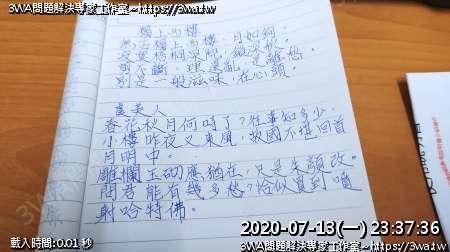 3WA問題解決專家工作室~https://3wa.tw
3WA問題解決專家工作室~https://3wa.tw
獨上西樓
無言獨上西樓，月如鉤。
寂寞梧桐深院，鎖深秋。
剪不斷，理還亂，是離愁。
別是一般滋味，在心頭。
虞美人
春花秋月何時了？往事知多少。
小樓昨夜又東風，故國不堪回首
月明中。
雕欄玉砌應猶在，只是朱顏改。
問君能有幾多愁？恰似直到噴
射哈特佛。
2020-07-13(一) 23:37:36
載入時間:0.01 秒
3WA問題解決專家工作室~https://3wa.tw